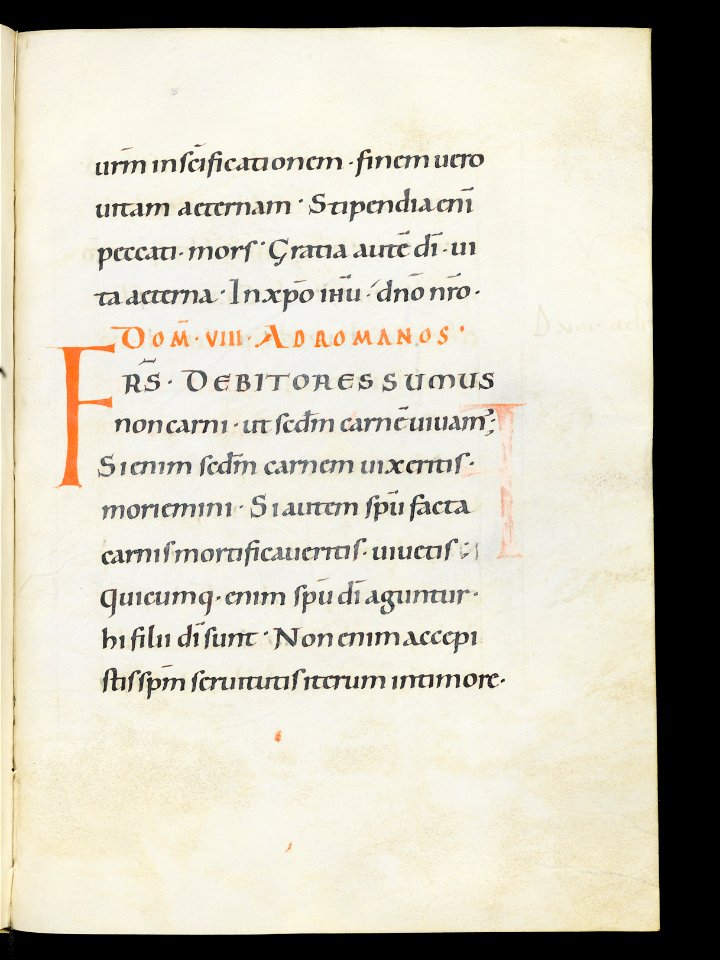 urm̄ in sc̄ificationem · finem uero
uitam aeternam · Stipendia eni̅
peccati · mors · Gratia autē dī · ui
ta aeterna · In xp̄o ihū · dnō nrō ·
DOM̄ · VIII · AD ROMANOS ·
FRS̄ · DEBITORES SUMUS
non carni · ut secdm̄ carnē uiuam;
Si enim secdm̄ carnem uixeritis ·
moriemini · Si autem spū facta
carnis mortificaueritis · uiuetis
Quicumq · enim spū dī aguntur ·
hi filii dī sunt · Non enim accepi
stis spm̄ seruitutis iterum in timore ·